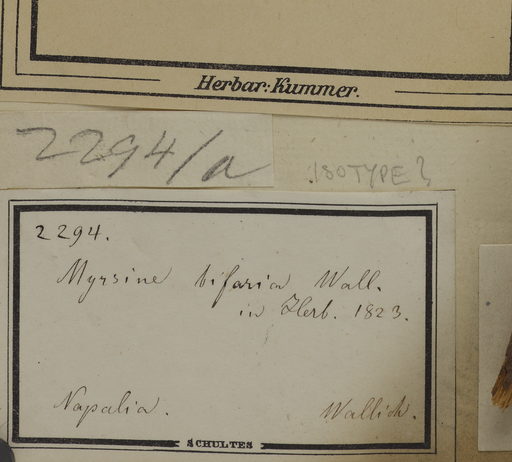 Herbar: Kummer.
2294/a
ISOTYPE?
2294.
Myrsine bifaria Wall.
in Herb. 1823.
Napalia.
Wallich.
SCHULTES